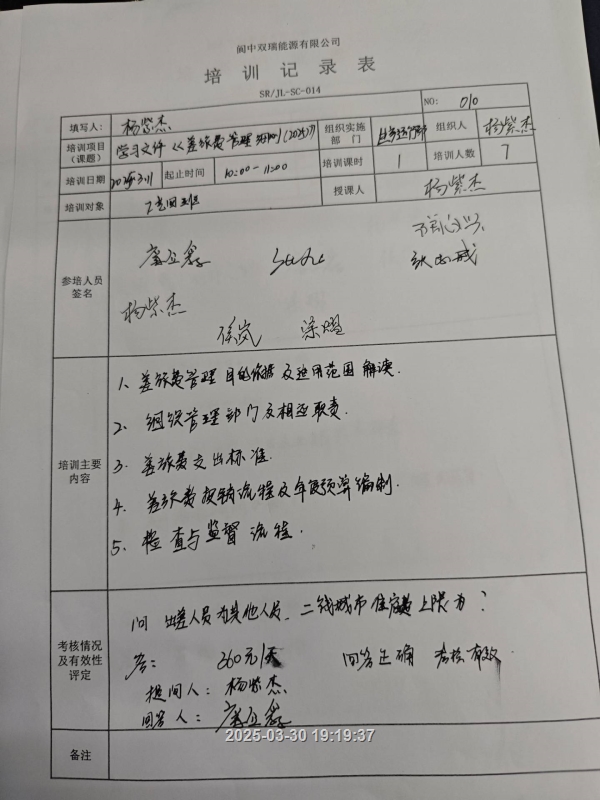 阆中双瑞能源有限公司
培训记录表
SR/JL-SC-014
NO: 010
填写人: 杨紫杰
培训项目(课题) 学习文件《差旅费管理细则(2025)》 组织实施部门 生产运行部 组织人 杨紫杰
培训日期 2025.3.11 起止时间 10:00-11:00 培训课时 1 培训人数 7
培训对象 工艺四班 授课人 杨紫杰
参培人员签名
杨紫杰 侯岚 梁熠
培训主要内容
1、差旅费管理目的依据及适用范围解读.
2、组织管理部门及相应职责.
3、差旅费支出标准.
4、差旅费报销流程及年度预算编制.
5、检查与监督流程.
考核情况及有效性评定
问 出差人员为其他人员、二线城市住宿费上限为?
答: 360元/天 回答正确 考核有效.
提问人: 杨紫杰
回答人:
备注
2025-03-30 19:19:37